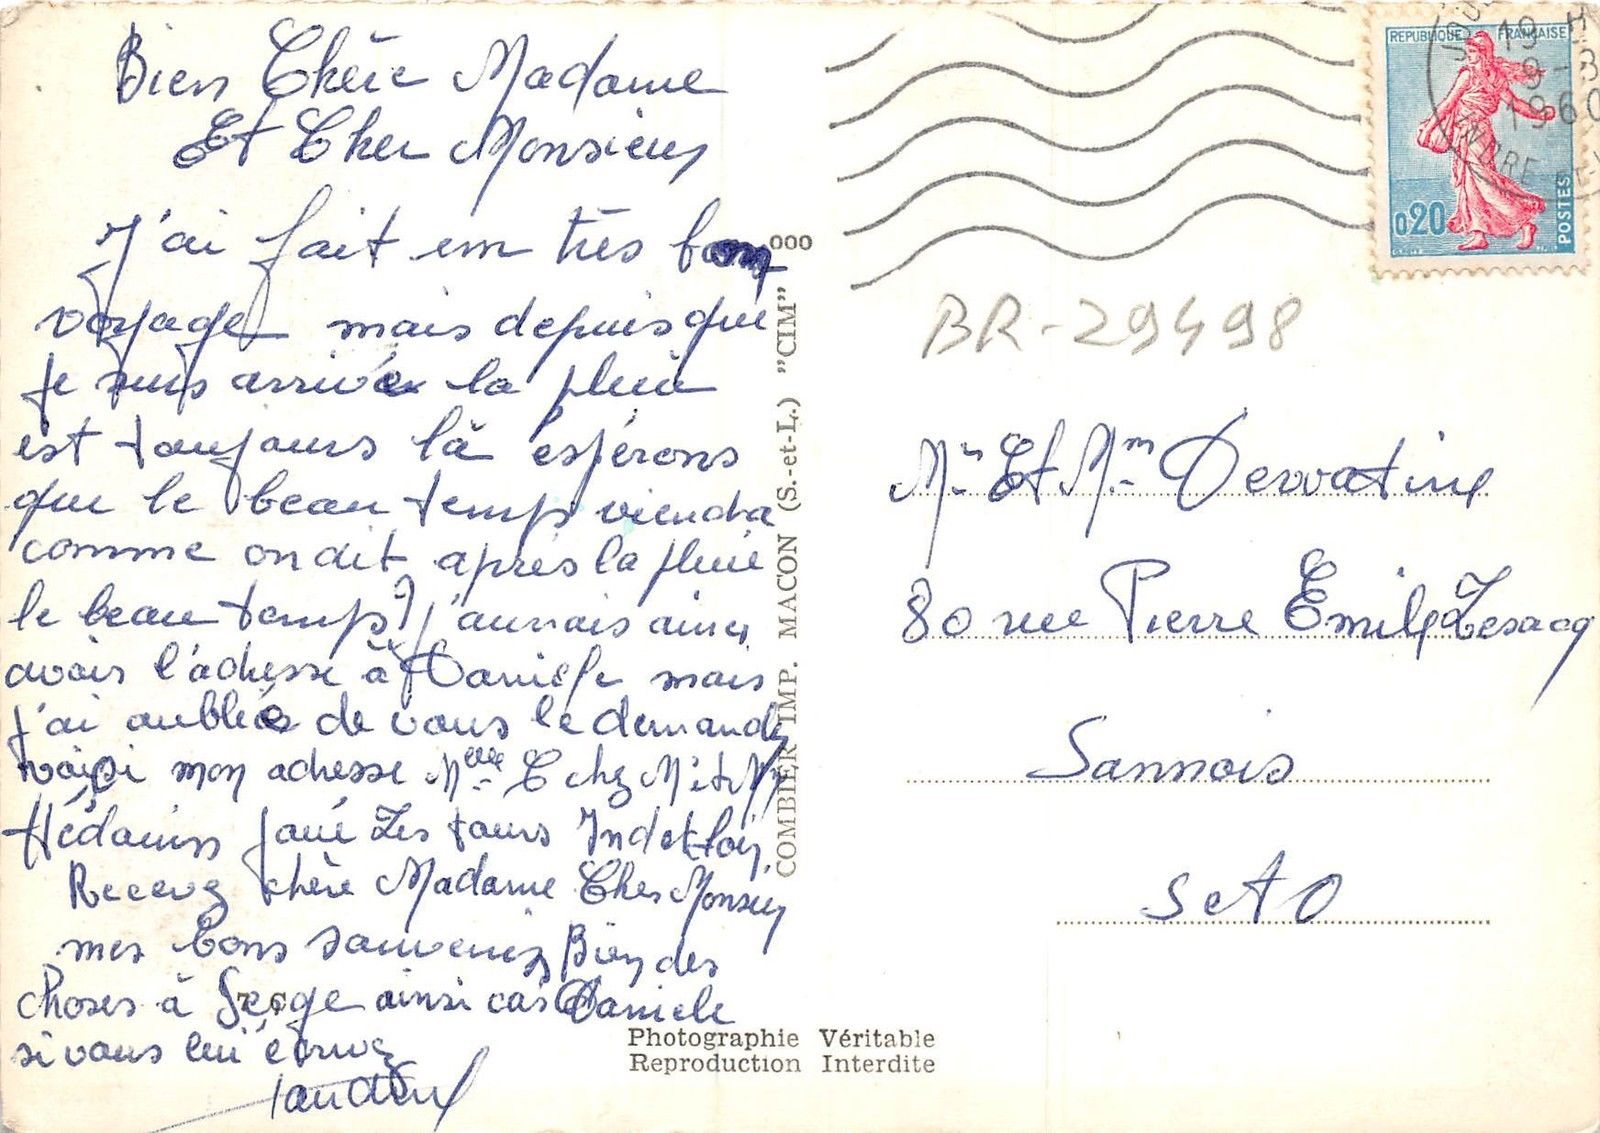 Bien Chère Madame
Et Cher Monsieur
J'ai fait em très bon
voyage mais depuis que
je suis arrivée la pluie
est toujours là espérons
que le beau temps viendra
comme on dit après la pluie
le beau temps? J'aurais aimer
avoir l'adresse à Danièle mais
j'ai oubliée de vous le demander
voici mon adresse Melle C chez Mr et Mme
Joué Les tours Ind et Loir.
Recevez chère Madame Cher Monsieur
mes bons souvenirs Bien des
choses à Serge ainsi cas Danièle
si vous lui écrivez
000
COMBIER IMP. MACON (S.-et-L.) "CIM"
Photographie Véritable
Reproduction Interdite
REPUBLIQUE FRANÇAISE
0,20
POSTES
19 H
9 - 3
1960
INDRE
BR-29498
Mr Et Mme Dervatine
80 rue Pierre Emile Lesacq
Sannois
S et O